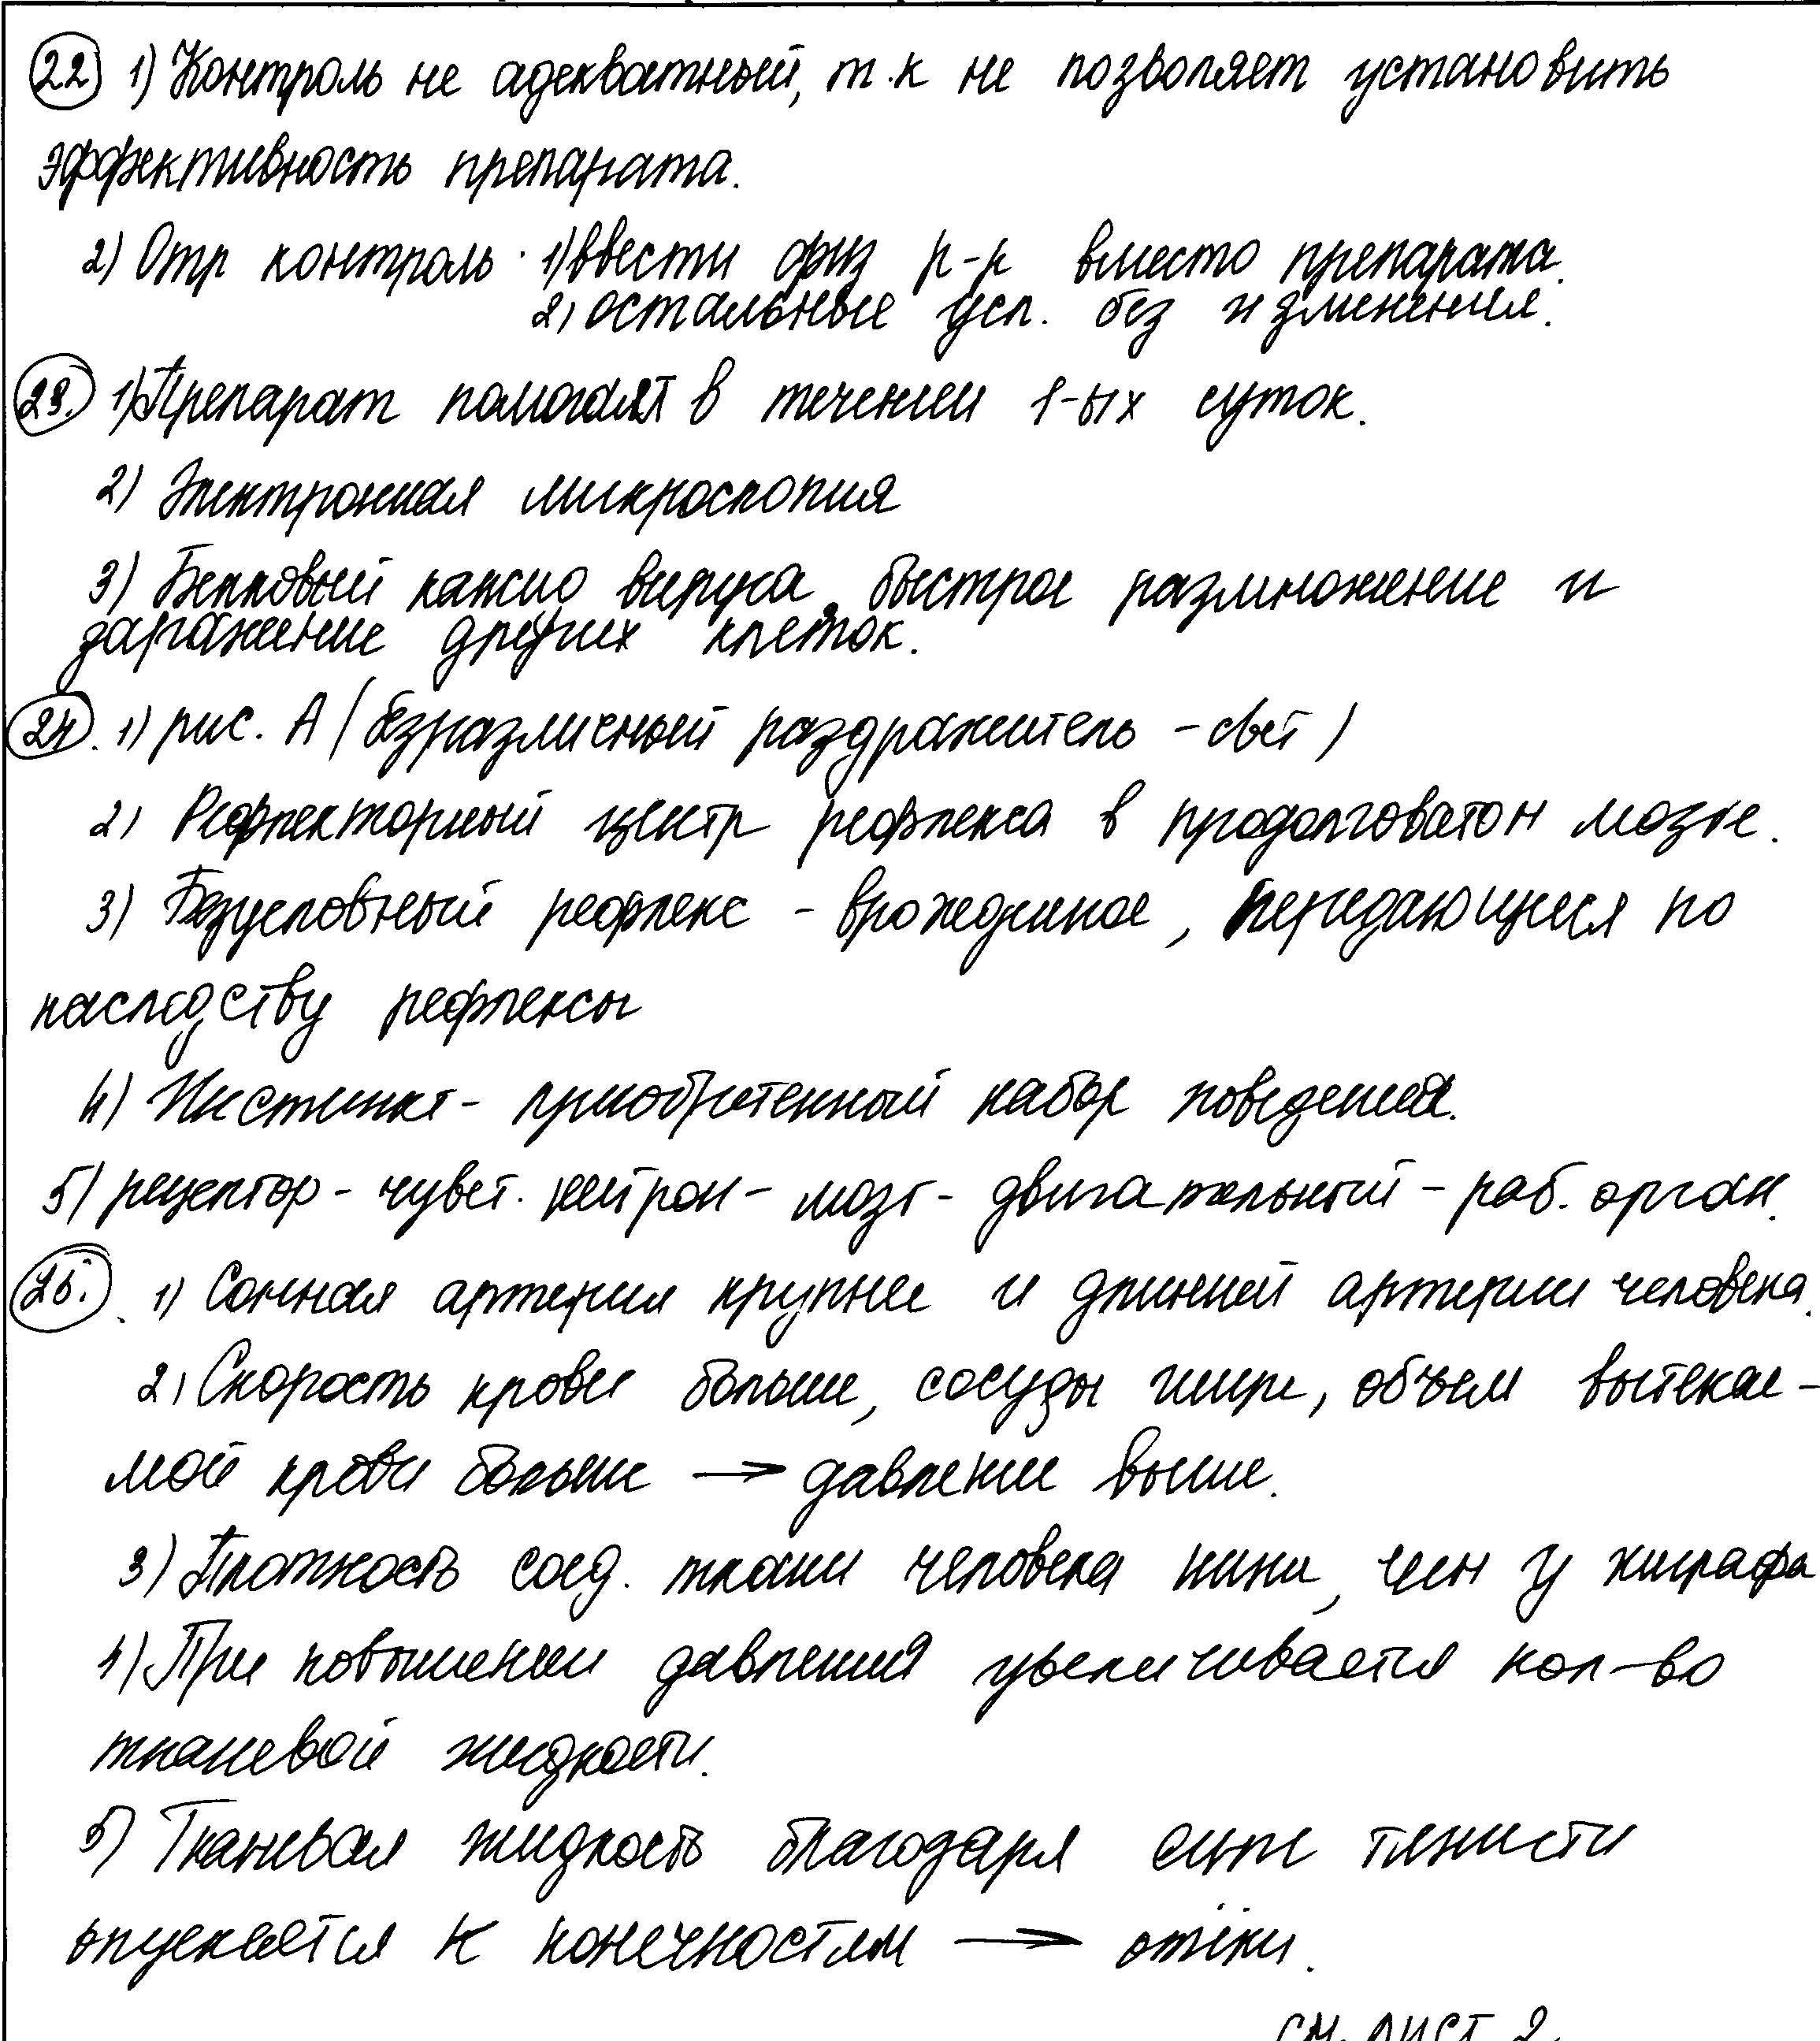 22 1) Контроль не адекватный, т.к не позволяет установить
эффективность препарата.
2) Отр контроль · 1) ввести физ р-р вместо препарата.
2) остальные усл. без изменения.
23. 1) Препарат помогает в течении 1-ых суток.
2) Электронная микроскопия
3) Белковый вируса, быстрое размножение и
заражение других клеток.
24. 1) рис. А (безразличный раздражитель - свет)
2) Рефлекторный центр рефлекса в продолговатом мозге.
3) Безусловный рефлекс - врожденное, передающиеся по
наследству рефлексы
4) Инстинкт - приобретенный набор поведения.
5) рецептор - чувст. нейрон - мозг - двигательный - раб. орган.
25. 1) Сонная артерия крупнее и длинней артерии человека.
2) Скорость крови больше, сосуды шире, объем вытекае-
мой крови больше → давление выше.
3) Плотность соед. ткани человека ниже, чем у жирафа
4) При повышении давления увеличивается кол-во
тканевой жидкости.
5) Тканевая жидкость благодаря силе тяжести
опускается к конечностям → отёки.
см. лист 2.